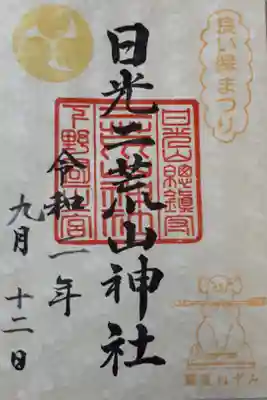 良い縁まつり
日光山總鎮守
日光二荒山神社
下野國一宮
令和二年
九月十二日
ねずみ